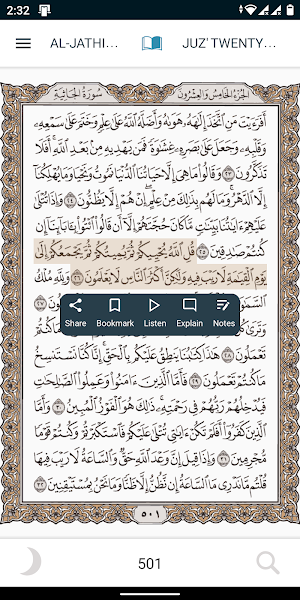 2:32
AL-JATHI...
JUZ' TWENTY...
سُورَةُ الجَاثِيَةِ
الجُزْءُ الخَامِسُ وَالعِشْرُونَ
أَفَرَءَيْتَ مَنِ ٱتَّخَذَ إِلَٰهَهُۥ هَوَىٰهُ وَأَضَلَّهُ ٱللَّهُ عَلَىٰ عِلْمٍ وَخَتَمَ عَلَىٰ سَمْعِهِۦ
وَقَلْبِهِۦ وَجَعَلَ عَلَىٰ بَصَرِهِۦ غِشَٰوَةً فَمَن يَهْدِيهِ مِنۢ بَعْدِ ٱللَّهِ أَفَلَا
تَذَكَّرُونَ ٢٣ وَقَالُوا۟ مَا هِىَ إِلَّا حَيَاتُنَا ٱلدُّنْيَا نَمُوتُ وَنَحْيَا وَمَا يُهْلِكُنَآ
إِلَّا ٱلدَّهْرُ وَمَا لَهُم بِذَٰلِكَ مِنْ عِلْمٍ إِنْ هُمْ إِلَّا يَظُنُّونَ ٢٤ وَإِذَا تُتْلَىٰ
عَلَيْهِمْ ءَايَٰتُنَا بَيِّنَٰتٍ مَّا كَانَ حُجَّتَهُمْ إِلَّآ أَن قَالُوا۟ ٱئْتُوا۟ بِـَٔابَآئِنَآ إِن
كُنتُمْ صَٰدِقِينَ ٢٥ قُلِ ٱللَّهُ يُحْيِيكُمْ ثُمَّ يُمِيتُكُمْ ثُمَّ يَجْمَعُكُمْ إِلَىٰ
يَوْمِ ٱلْقِيَٰمَةِ لَا رَيْبَ فِيهِ وَلَٰكِنَّ أَكْثَرَ ٱلنَّاسِ لَا يَعْلَمُونَ ٢٦ وَلِلَّهِ مُلْكُ
٢٧
Share Bookmark Listen Explain Notes
وَتَرَىٰ
تَعْمَلُونَ ٢٨ هَٰذَا كِتَٰبُنَا يَنطِقُ عَلَيْكُم بِٱلْحَقِّ إِنَّا كُنَّا نَسْتَنسِخُ
مَا كُنتُمْ تَعْمَلُونَ ٢٩ فَأَمَّا ٱلَّذِينَ ءَامَنُوا۟ وَعَمِلُوا۟ ٱلصَّٰلِحَٰتِ
فَيُدْخِلُهُمْ رَبُّهُمْ فِى رَحْمَتِهِۦ ذَٰلِكَ هُوَ ٱلْفَوْزُ ٱلْمُبِينُ ٣٠ وَأَمَّا
ٱلَّذِينَ كَفَرُوٓا۟ أَفَلَمْ تَكُنْ ءَايَٰتِى تُتْلَىٰ عَلَيْكُمْ فَٱسْتَكْبَرْتُمْ وَكُنتُمْ قَوْمًا
مُّجْرِمِينَ ٣١ وَإِذَا قِيلَ إِنَّ وَعْدَ ٱللَّهِ حَقٌّ وَٱلسَّاعَةُ لَا رَيْبَ فِيهَا
قُلْتُم مَّا نَدْرِى مَا ٱلسَّاعَةُ إِن نَّظُنُّ إِلَّا ظَنًّا وَمَا نَحْنُ بِمُسْتَيْقِنِينَ ٣٢
٥٠١
501